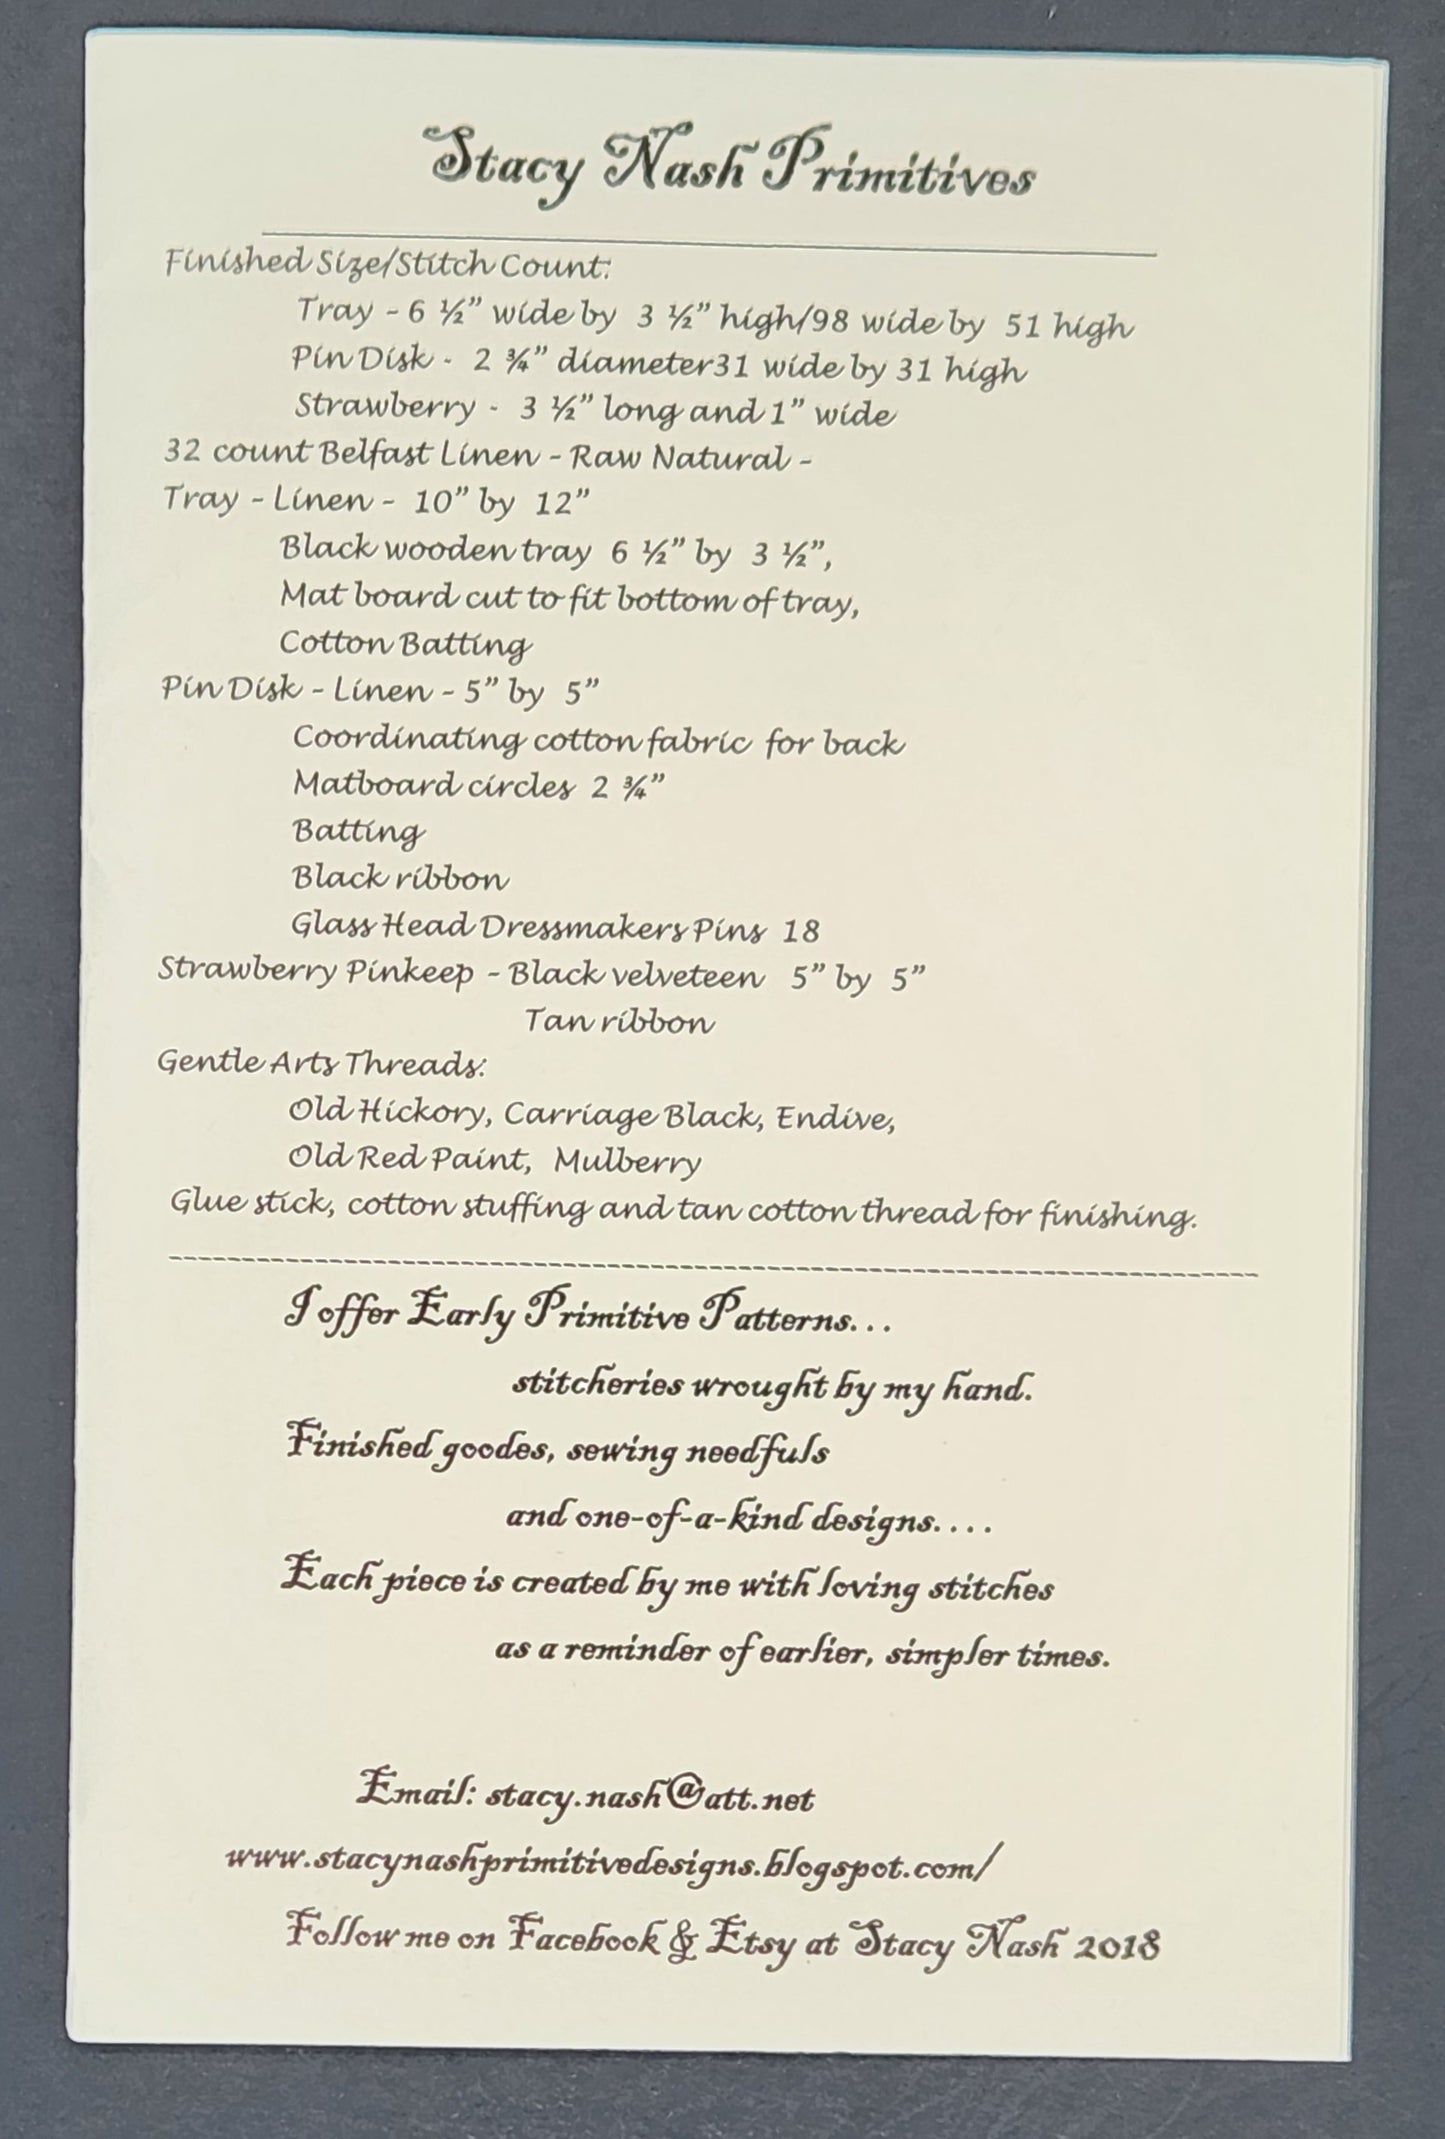 Stacy Nash Primitives
Finished Size/Stitch Count:
Tray - 6 ½” wide by 3 ½” high/98 wide by 51 high
Pin Disk - 2 ¾” diameter31 wide by 31 high
Strawberry - 3 ½” long and 1” wide
32 count Belfast Linen - Raw Natural -
Tray - Linen - 10” by 12”
Black wooden tray 6 ½” by 3 ½”,
Mat board cut to fit bottom of tray,
Cotton Batting
Pin Disk - Linen - 5” by 5”
Coordinating cotton fabric for back
Matboard circles 2 ¾”
Batting
Black ribbon
Glass Head Dressmakers Pins 18
Strawberry Pinkeep - Black velveteen 5” by 5”
Tan ribbon
Gentle Arts Threads:
Old Hickory, Carriage Black, Endive,
Old Red Paint, Mulberry
Glue stick, cotton stuffing and tan cotton thread for finishing.
I offer Early Primitive Patterns...
stitcheries wrought by my hand.
Finished goodes, sewing needfuls
and one-of-a-kind designs....
Each piece is created by me with loving stitches
as a reminder of earlier, simpler times.
Email: stacy.nash@att.net
www.stacynashprimitivedesigns.blogspot.com/
Follow me on Facebook & Etsy at Stacy Nash 2018